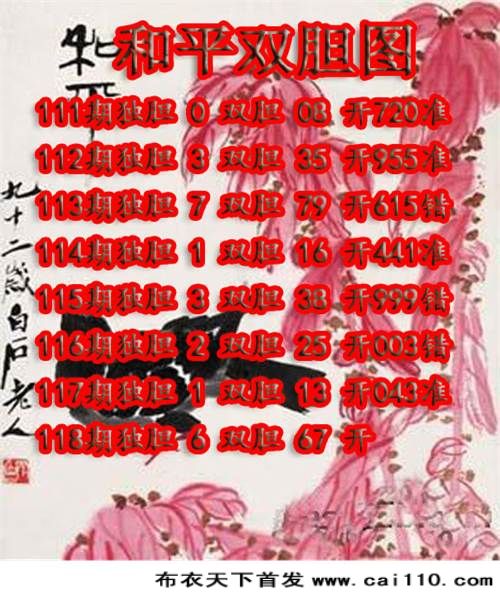 和平双胆图
111期独胆 0 双胆 08 开720准
112期独胆 3 双胆 35 开955准
113期独胆 7 双胆 79 开615错
114期独胆 1 双胆 16 开441准
115期独胆 3 双胆 38 开999错
116期独胆 2 双胆 25 开003错
117期独胆 1 双胆 13 开043准
118期独胆 6 双胆 67 开
和平
九十二岁白石老人
布衣天下首发 www.cai110.com